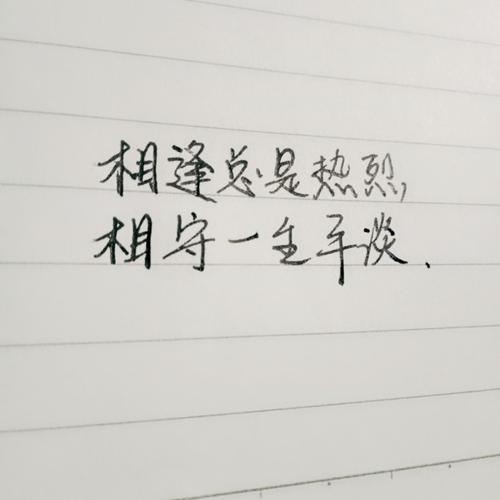 相逢总是热烈,
相守一生平淡.